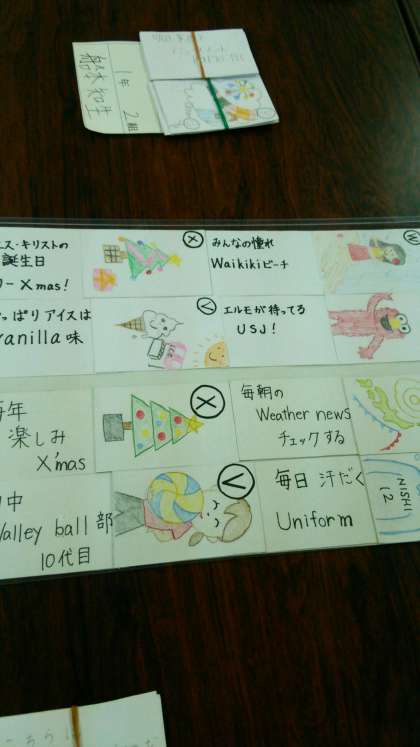 1年 2組
X
ス・キリストの
誕生日
Xmas!
みんなの憧れ
Waikikiビーチ
W
っぱりアイスは
vanilla 味
V
エルモが待ってる
USJ!
年
楽しみ
X'mas
X
毎朝の
Weather news
チェックする
中
Valley ball 部
10代目
V
毎日 汗だく
Uniform
NISHI
12